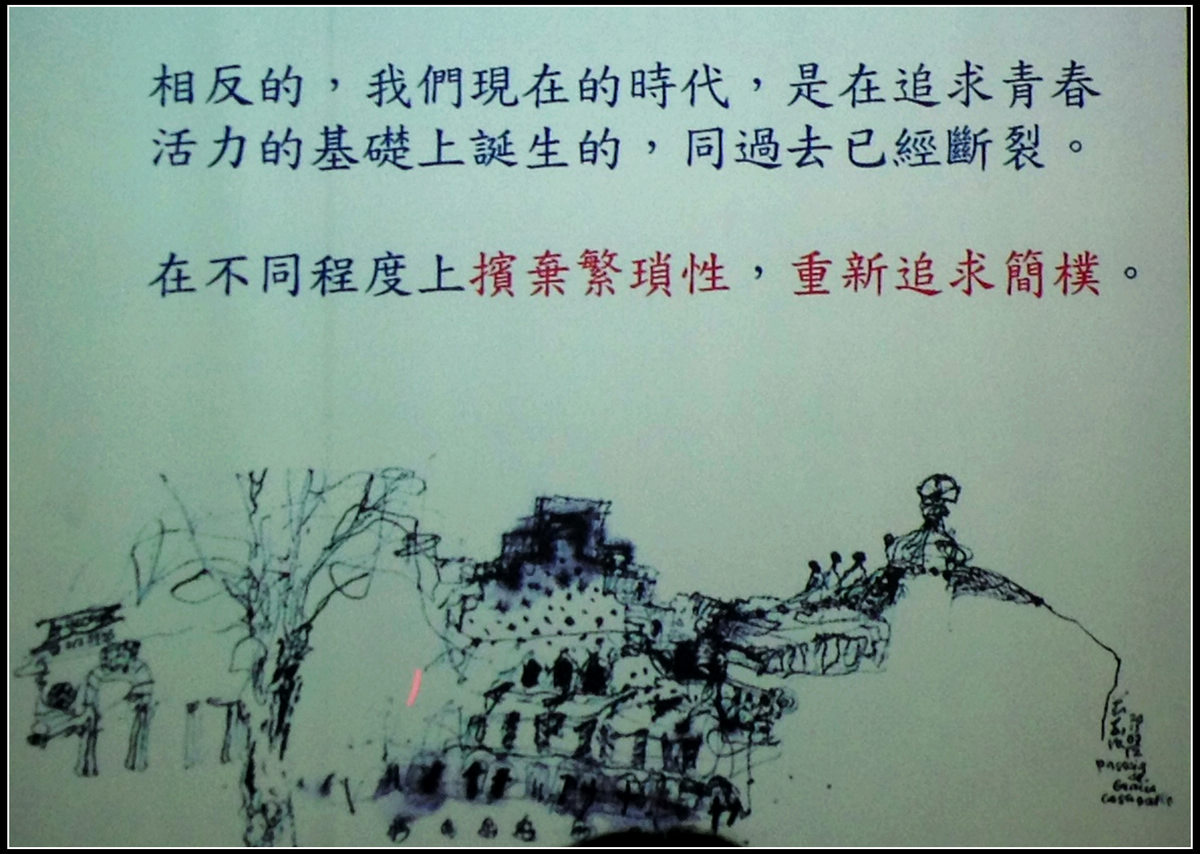 相反的，我們現在的時代，是在追求青春
活力的基礎上誕生的，同過去已經斷裂。
在不同程度上擯棄繁瑣性，重新追求簡樸。